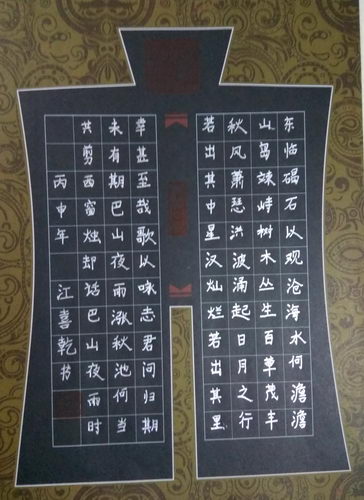 东临碣石以观沧海水何澹澹
山岛竦峙树木丛生百草茂丰
秋风萧瑟洪波涌起日月之行
若出其中星汉灿烂若出其里
幸甚至哉歌以咏志君问归期
未有期巴山夜雨涨秋池何当
共剪西窗烛却话巴山夜雨时
丙申年 江喜乾书